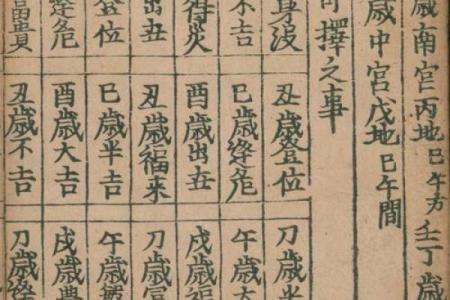 歲南宮丙地巳午方壬丁歲
歲中宮戊地巳午間
擇之事
身没
不吉
得炎
出丑
登位
逢危
富貴
丑歲登位
巳歲逢危
酉歲出丑
丑歲福來
巳歲半吉
酉歲大吉
丑歲不吉
刀歲
午歲
戌歲
刀歲
午歲
戌歲
刀歲